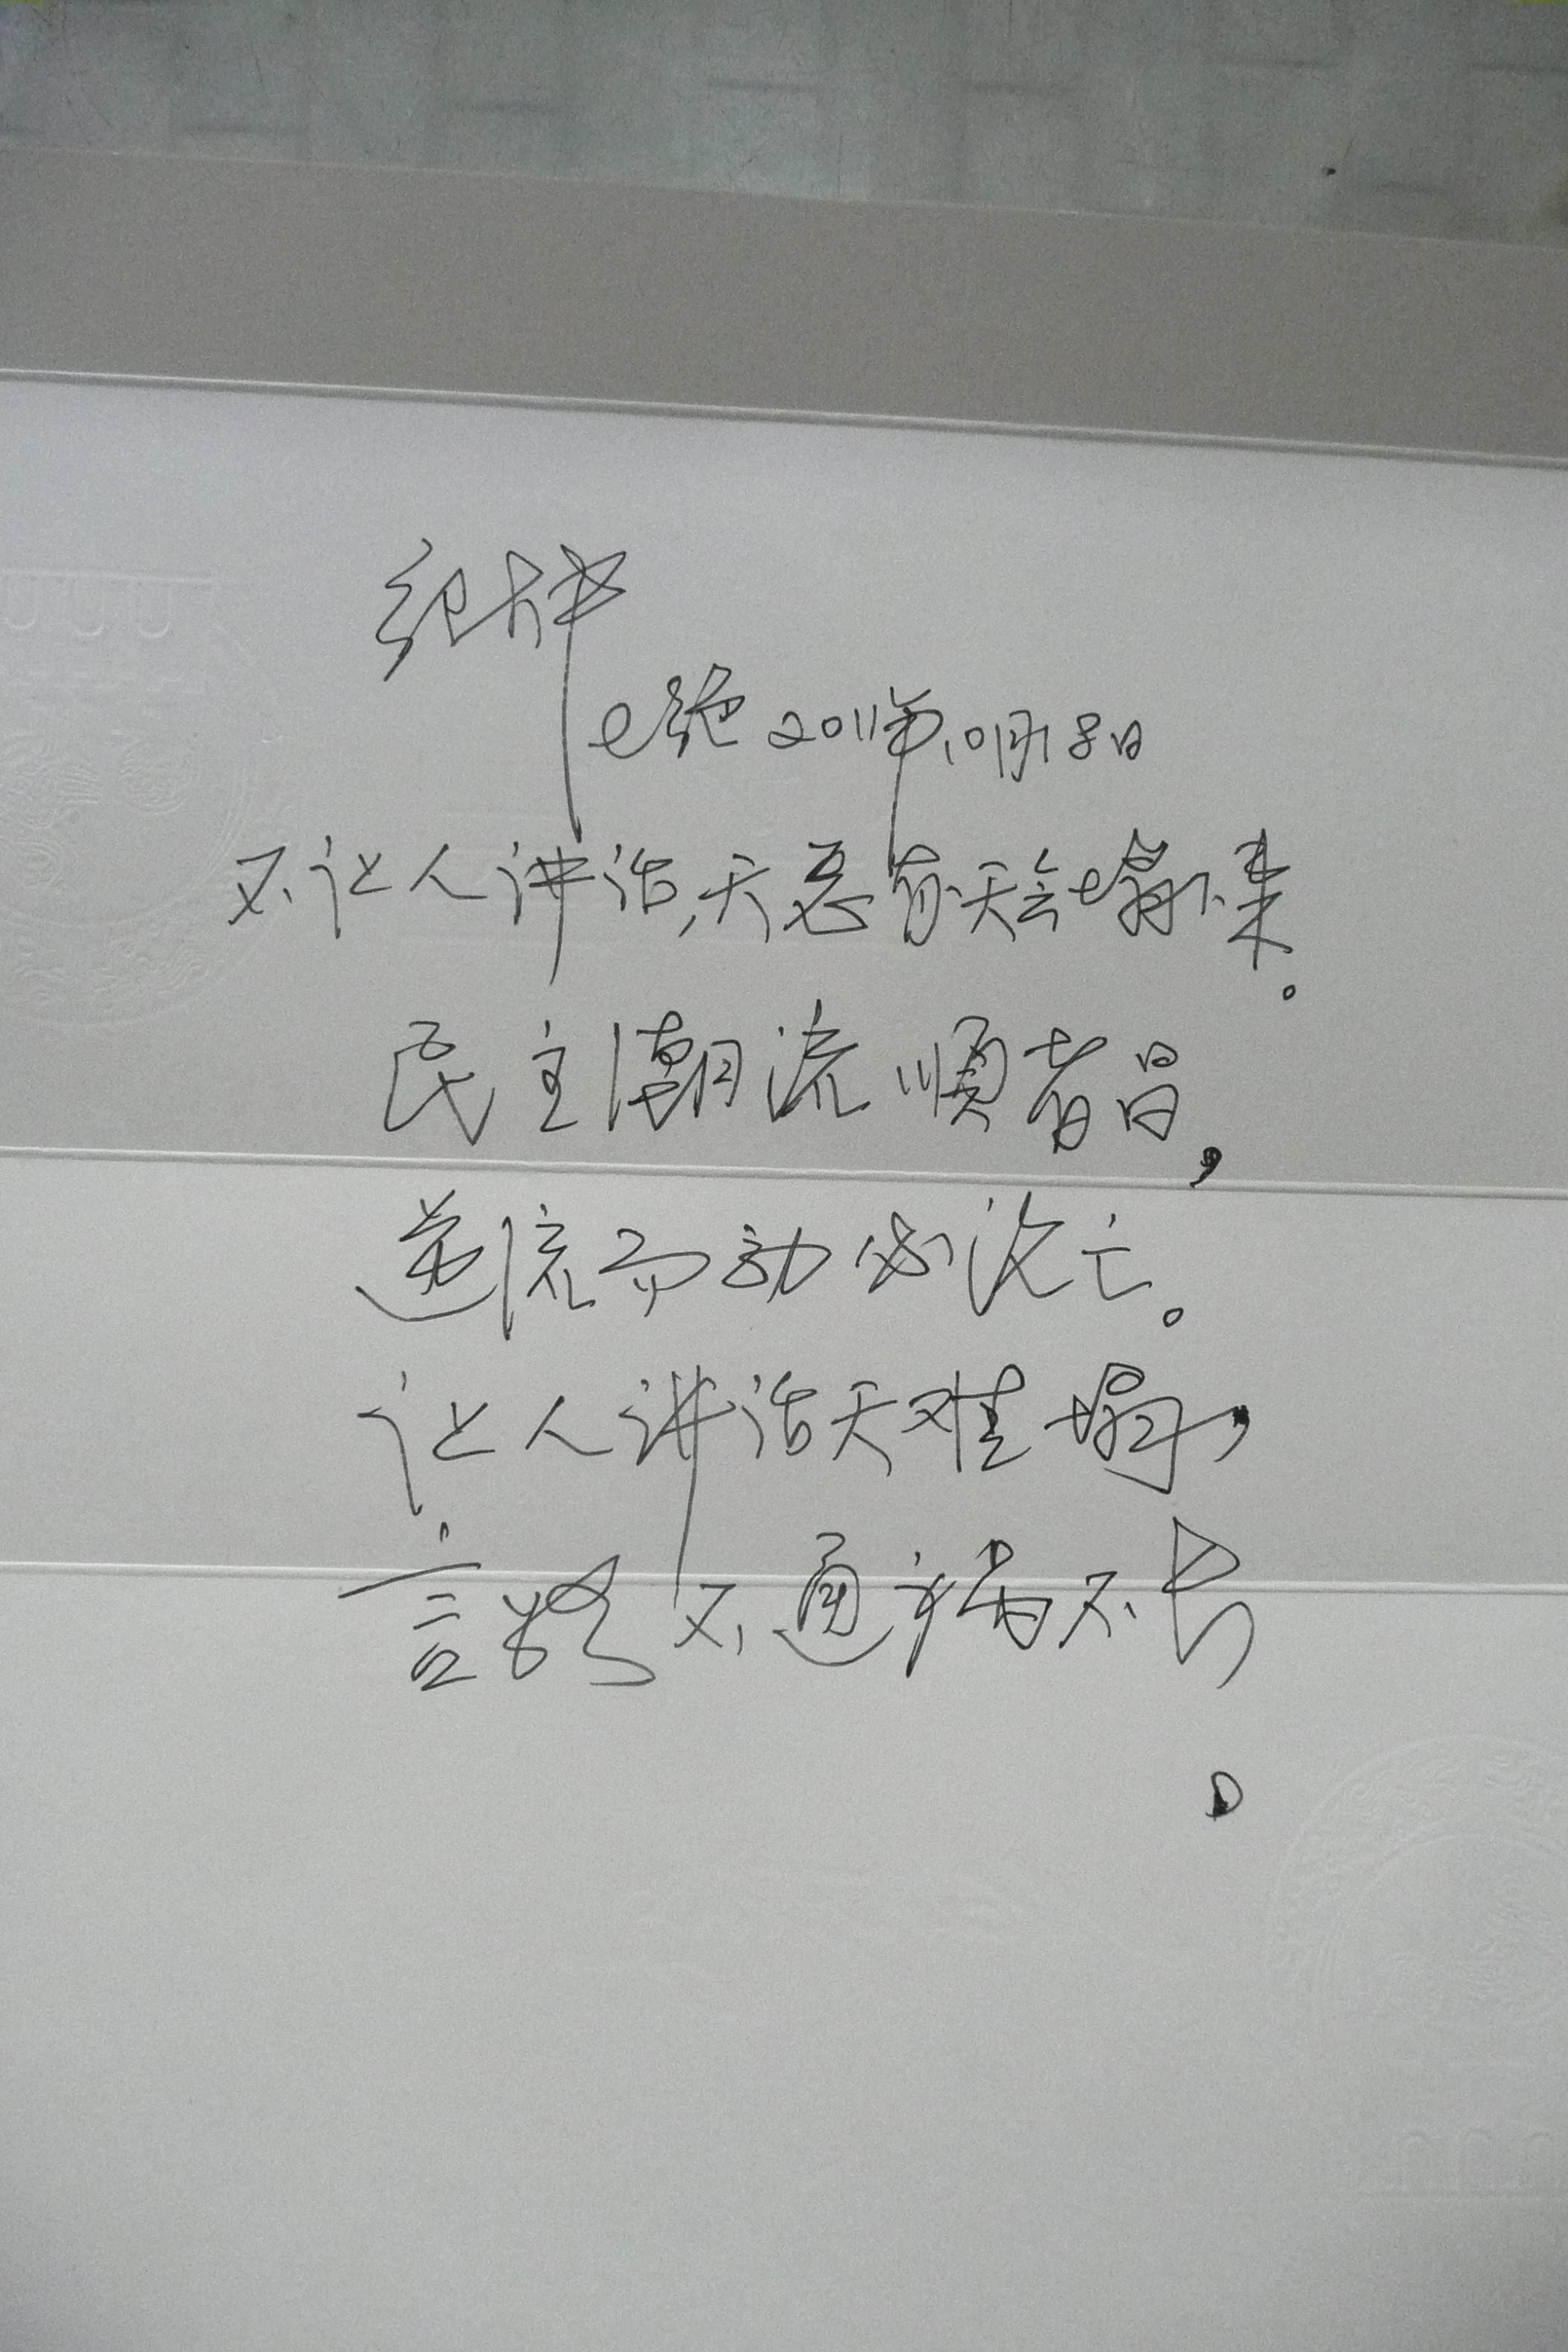 七绝 2011年10月18日
不让人讲话,天总有天会塌下来。
民主潮流顺者昌,
逆流而动必没亡。
让人讲话天难塌,
言路不通病不长
。